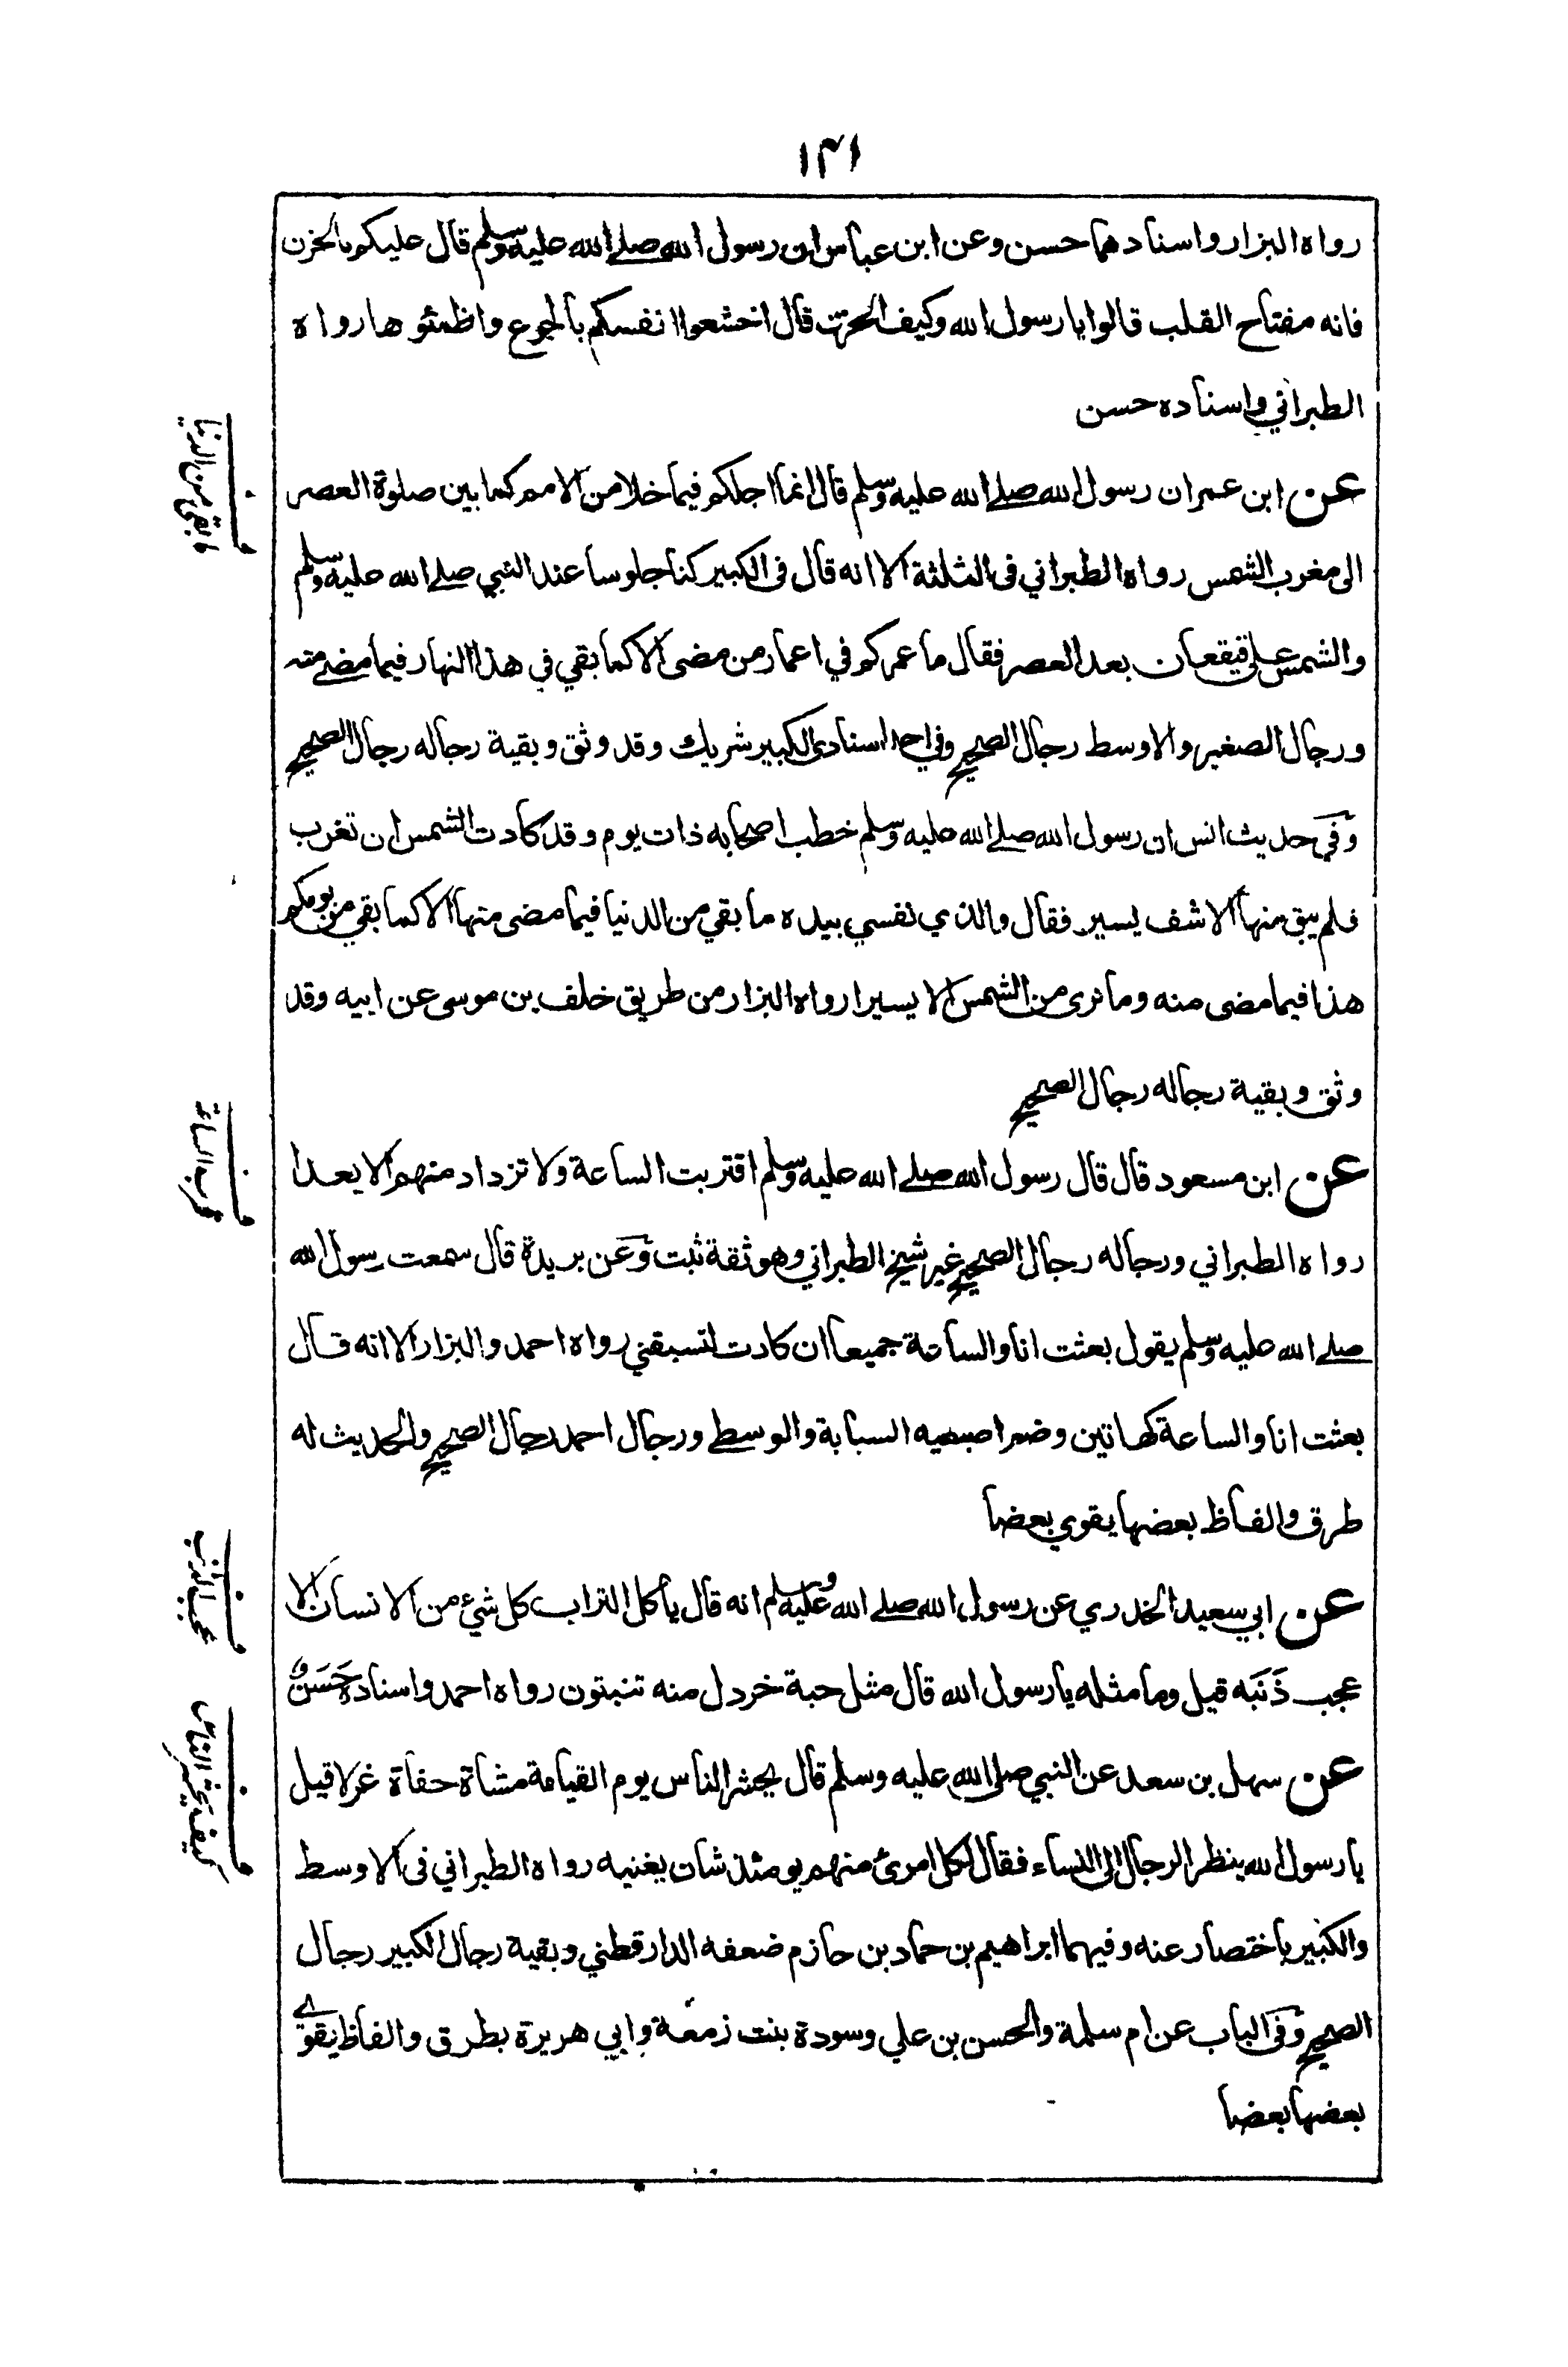 ۱۴۱
رواه البزار واسنادهما حسن وعن ابن عباس ان رسول الله صلے الله عليه وسلم قال عليكم بالحزن
فانه مفتاح القلب قالوا يا رسول الله وكيف الحزن قال اخشعوا انفسكم بالجوع واظمئوها رواه
الطبراني واسناده حسن
عن ابن عمر ان رسول الله صلے الله عليه وسلم قال انما اجلكم فيما خلا من الامم كما بين صلوة العصر
الى مغرب الشمس رواه الطبراني فى الثلثة الا انه قال فى الكبير كنا جلوسا عند النبي صلے الله عليه وسلم
والشمس على قيقعان بعد العصر فقال ما عمركم في اعمار من مضى الا كما بقي في هذا النهار فيما مضے منه
ورجال الصغير والاوسط رجال الصحيح وفي احد اسنادى الكبير شريك وقد وثق وبقية رجاله رجال الصحيح
وفي حديث انس ان رسول الله صلے الله عليه وسلم خطب اصحابه ذات يوم وقد كادت الشمس ان تغرب
فلم يبق منها الا شف يسير فقال والذي نفسي بيده ما بقي من الدنيا فيما مضى منها الا كما بقي من يومكم
هذا فيما مضى منه وما نرى من الشمس الا يسيرا رواه البزار من طريق خلف بن موسى عن ابيه وقد
وثق وبقية رجاله رجال الصحيح
عن ابن مسعود قال قال رسول الله صلے الله عليه وسلم اقتربت الساعة ولا تزداد منهم الا بعدا
رواه الطبراني ورجاله رجال الصحيح غير شيخ الطبراني وهو ثقة ثبت وعن بريدة قال سمعت رسول الله
صلے الله عليه وسلم يقول بعثت انا والساعة جميعا ان كادت لتسبقني رواه احمد والبزار الا انه قال
بعثت انا والساعة كهاتين وضم اصبعيه السبابة والوسطے ورجال احمد رجال الصحيح والحديث له
طرق والفاظ بعضها يقوي بعضا
عن ابي سعيد الخدري عن رسول الله صلے الله عليه وسلم انه قال يأكل التراب كل شيء من الانسان الا
عجب ذَنَبه قيل وما مثله يا رسول الله قال مثل حبة خردل منه تنبتون رواه احمد واسناده حَسَنٌ
عن سهل بن سعد عن النبي صلى الله عليه وسلم قال يحشر الناس يوم القيامة مشاة حفاة غرلا قيل
يا رسول الله ينظر الرجال الى النساء فقال لكل امرئ منهم يومئذ شان يغنيه رواه الطبراني فى الاوسط
والكبير باختصار عنه وفيهما ابراهيم بن حماد بن حازم ضعفه الدارقطني وبقية رجال الكبير رجال
الصحيح وفى الباب عن ام سلمة والحسن بن علي وسودة بنت زمعة وابي هريرة بطرق والفاظ يقوے
بعضها بعضا
ف ما بقى من الدنيا
ف قرب الساعة
ف عجب الذنب
ف كيف يحشر الناس